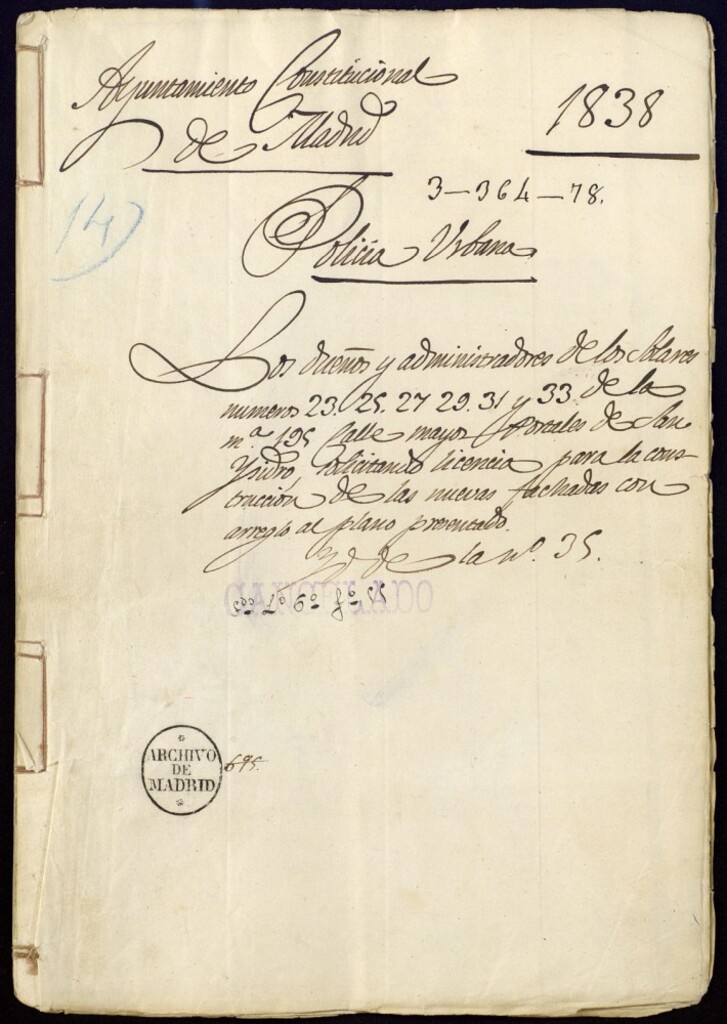 Ayuntamiento Constitucional
de Madrid
1838
3-364-78.
14)
Policía Urbana
Los dueños y administradores de los Solares
numeros 23. 25. 27 29. 31 y 33. de la
m.ª 195 Calle mayor Portales de San
Ysidro, solicitando licencia para la cons-
trucción de las nuevas fachadas con
arreglo al plano presentado.
Yd de la nº. 35.
Lº 6º fº 85
ARCHIVO
DE
MADRID
695.